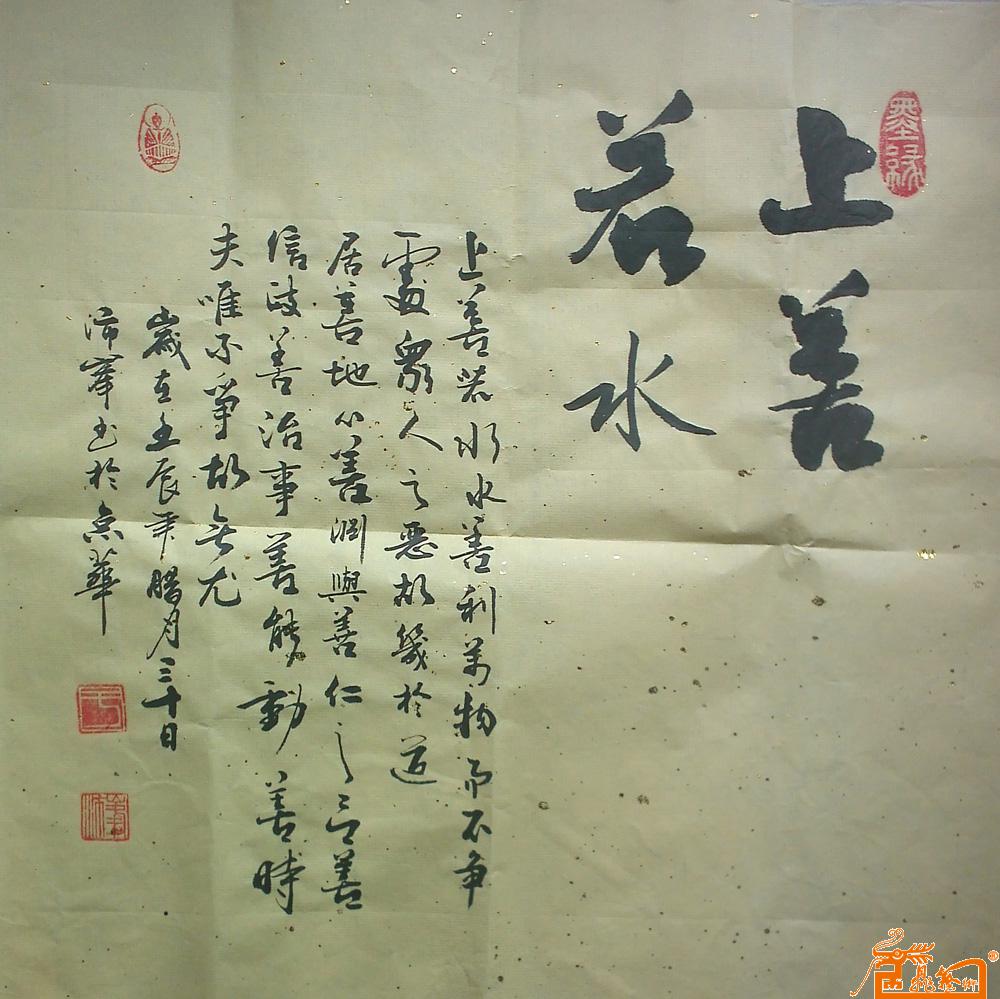 墨緣
上善
若水
上善若水水善利萬物而不争
處衆人之惡故幾於道
居善地心善渊與善仁之言善
信政善治事善能動善時
夫唯不爭故無尤
歲在壬辰年腊月三十日
书於京華